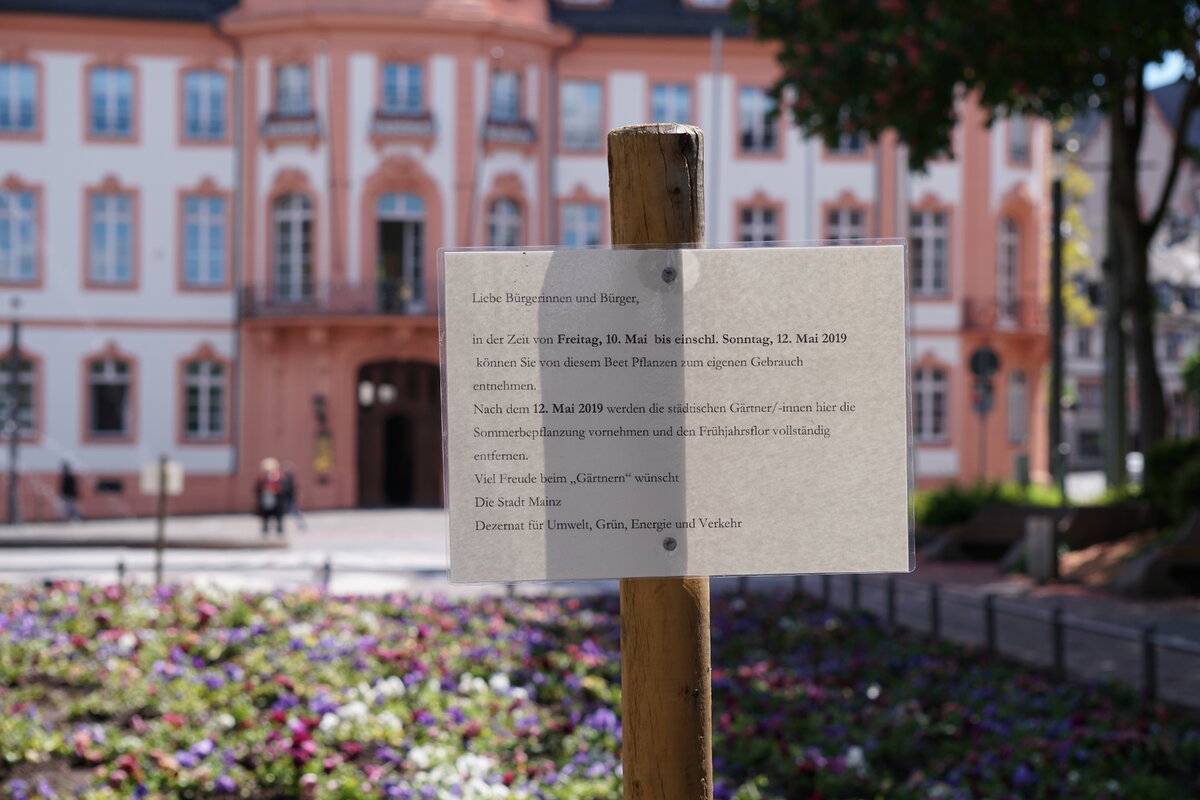 Liebe Bürgerinnen und Bürger,
in der Zeit von Freitag, 10. Mai bis einschl. Sonntag, 12. Mai 2019
können Sie von diesem Beet Pflanzen zum eigenen Gebrauch
entnehmen.
Nach dem 12. Mai 2019 werden die städtischen Gärtner/-innen hier die
Sommerbepflanzung vornehmen und den Frühjahrsflor vollständig
entfernen.
Viel Freude beim „Gärtnern“ wünscht
Die Stadt Mainz
Dezernat für Umwelt, Grün, Energie und Verkehr